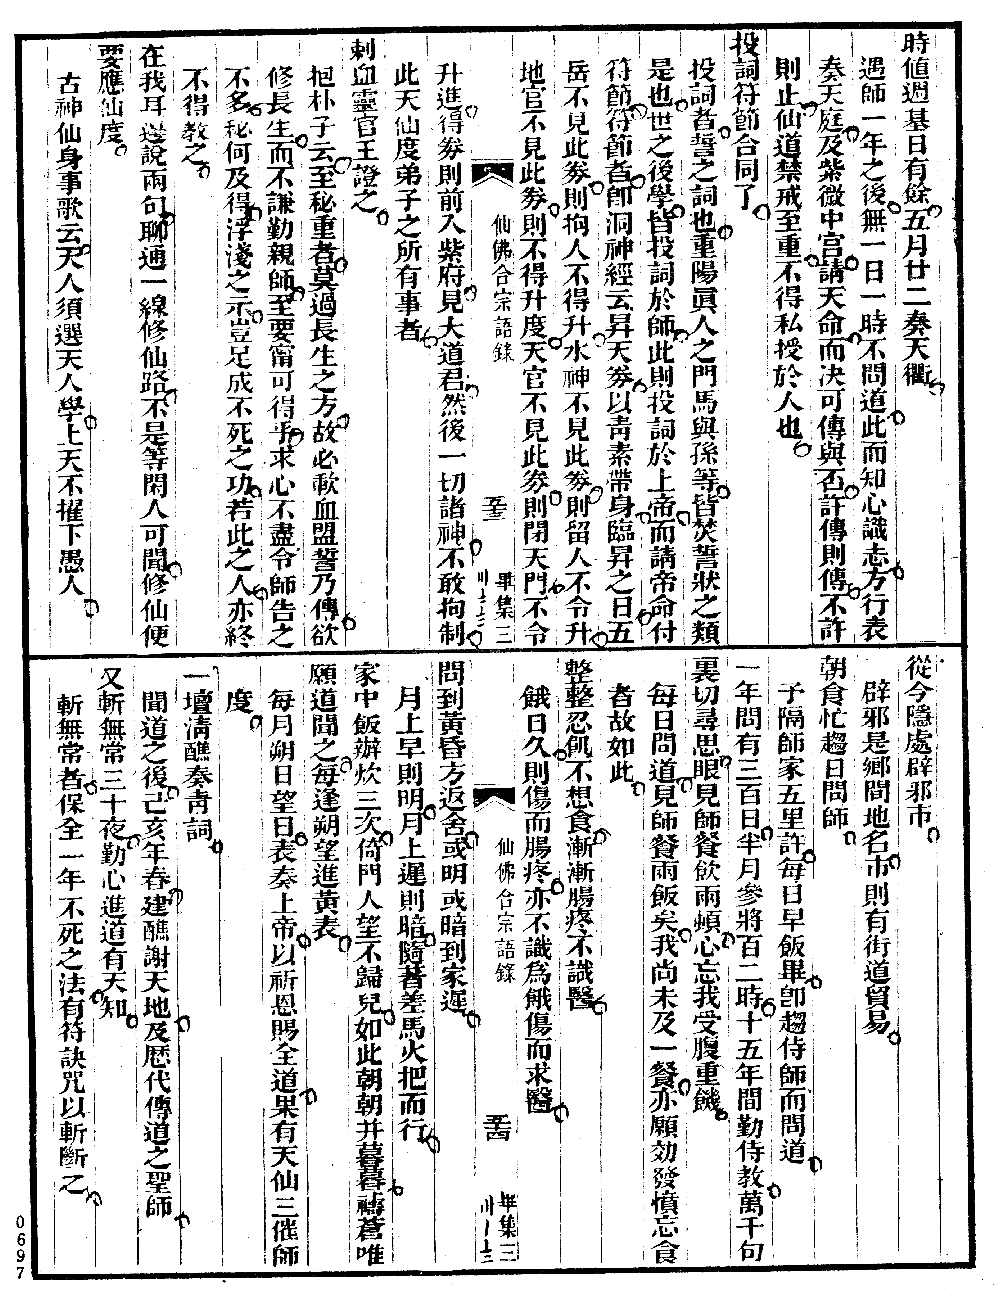 時値週基日有餘五月廿二奏天衢
遇師一年之後無一日一時不問道此而知心識志方行表
奏天庭及紫微中宮請天命而决可傳與否許傳則傳不許
則止仙道禁戒至重不得私授於人也
投詞符節合同了
投詞者誓之詞也重陽眞人之門馬與孫等皆焚誓狀之類
是也世之後學皆投詞於師此則投詞於上帝而請帝命付
符節符節者卽洞神經云昇天券以靑素帶身臨昇之日五
岳不見此券則拘人不得升水神不見此券則留人不令升
地官不見此券則不得升度天官不見此券則閉天門不令
仙佛合宗語錄
畢集三
升進得券則前入紫府見大道君然後一切諸神不敢拘制
此天仙度弟子之所有事者
刺血靈官王證之
抱朴子云至秘重者莫過長生之方故必歃血盟誓乃傳欲
修長生而不謙勤親師至要甯可得乎求心不盡令師告之
不多秘何及得浮淺之示豈足成不死之功若此之人亦終
不得教之
在我耳邊說兩句聊通一線修仙路不是等閑人可聞修仙便
要應仙度
古神仙身事歌云天人須選天人學上天不擢下愚人
從今隱處辟邪市
辟邪是鄉間地名市則有街道貿易
朝食忙趨日問師
予隔師家五里許每日早飯畢卽趨侍師而問道
一年問有三百日半月參將百二時十五年間勤侍教萬千句
裏切尋思眼見師餐飲兩頓心忘我受腹重饑
每日問道見師餐兩飯矣我尚未及一餐亦願効發憤忘食
者故如此
整整忍飢不想食漸漸腸疼不識醫
餓日久則傷而腸疼亦不識爲餓傷而求醫
仙佛合宗語錄
畢集三
問到黃昏方返舍或明或暗到家遲
月上早則明月上遲則暗隨著差馬火把而行
家中飯辦炊三次倚門人望不歸兒如此朝朝并暮暮禱蒼唯
願道聞之每逢朔望進黃表
每月朔日望日表奏上帝以祈恩賜全道果有天仙三催師
度
一壇淸醮奏靑詞
聞道之後己亥年春建醮謝天地及歷代傳道之聖師
又斬無常三十夜勤心進道有天知
斬無常者保全一年不死之法有符訣咒以斬斷之
0697